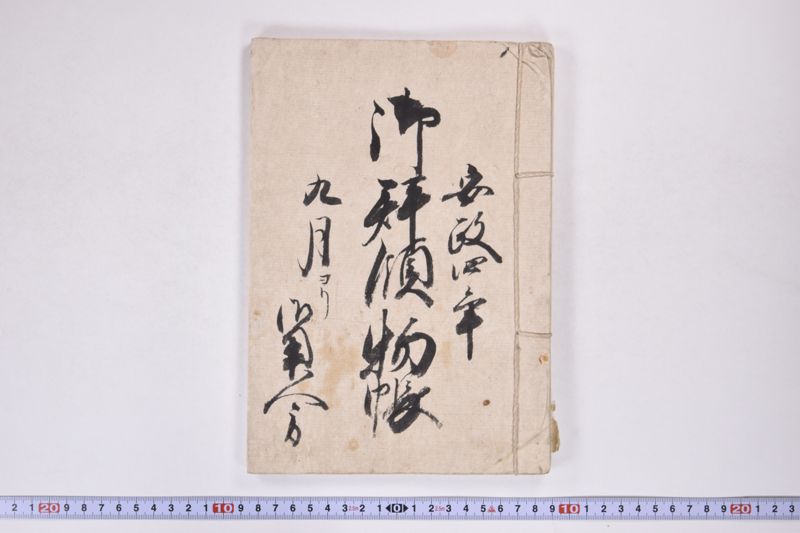 安政四年
御拝領物帳
九月ヨリ
御用人方
2 1 20 9 8 7 6 5 4 3 2 1 10 9 8 7 6 5 4 3 2 1 0 1 2 3 4 5 6 7 8 9 10 1 2 3 4 5 6 7 8 9 20 1 2 3